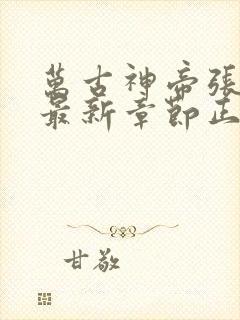 萬古神帝張
最新章節正
甘敬